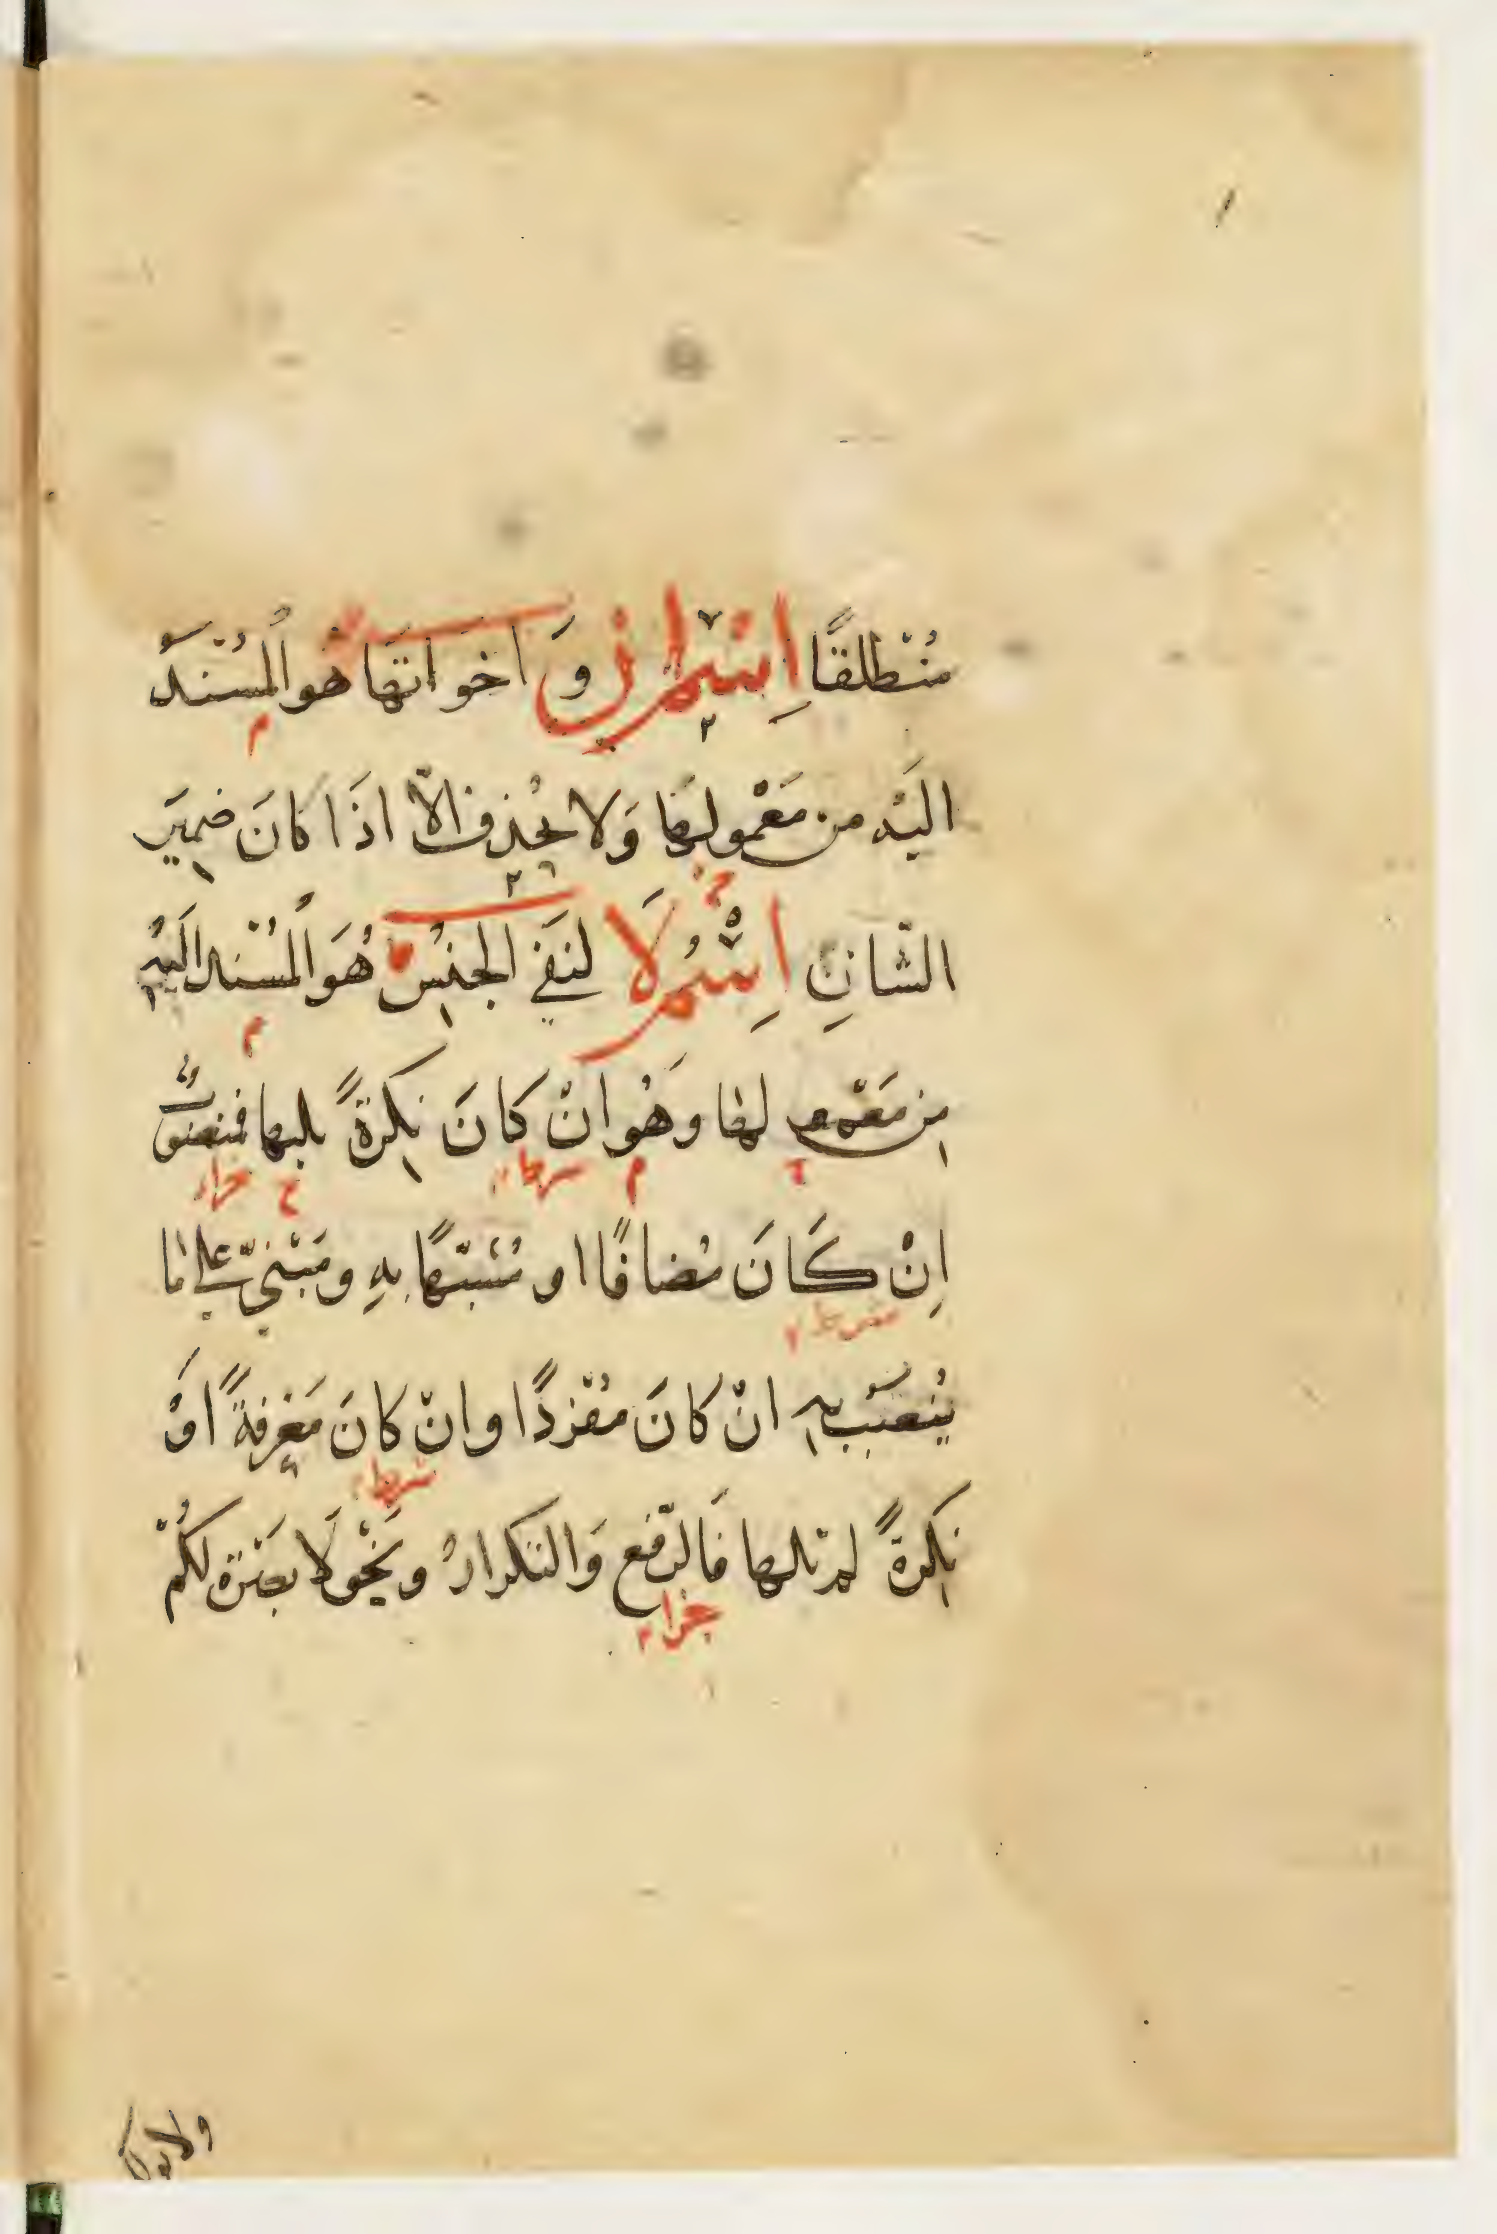 مُنْطلقًا اِسْمُ اِنَّ وَ اخَواتهَا هُو المُسْنَدُ
اليَْه من مَعْمولهَا وَلا يُحْذف الاّ اذَا كانَ ضميرَ
الشّانِ اِسْمُ لَا لنَفْي الجنْسِ هُوَ المُسْنَد اليَْه
مِن مَعْمو لهَا وَهُوَ انْ كانَ نكِرَةً يليها فمنصوبٌ
شرط
جزاء
اِنْ كَانَ مُضافًا او مُشَبّهًا بهِ ومَبْنيّ عَلى مَا
يُنْصَب به انْ كانَ مُفْرَدًا وانْ كانَ مَعْرِفةً اَوْ
شرط
نَكِرَةً لم تلها فَالرّفع وَالتكرارُ ونَحْو لَا بصْرَة لكُمْ
جزاء
ولا